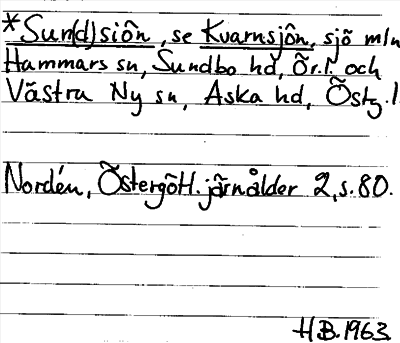 *Sun(d)siön, se Kvarnsjön, sjö mln
Hammars sn, Sundbo hd, Ör. l. och
Västra Ny sn, Aska hd, Östg. l.
Nordén, Östergötl. järnålder 2, s. 80.
H B. 1963